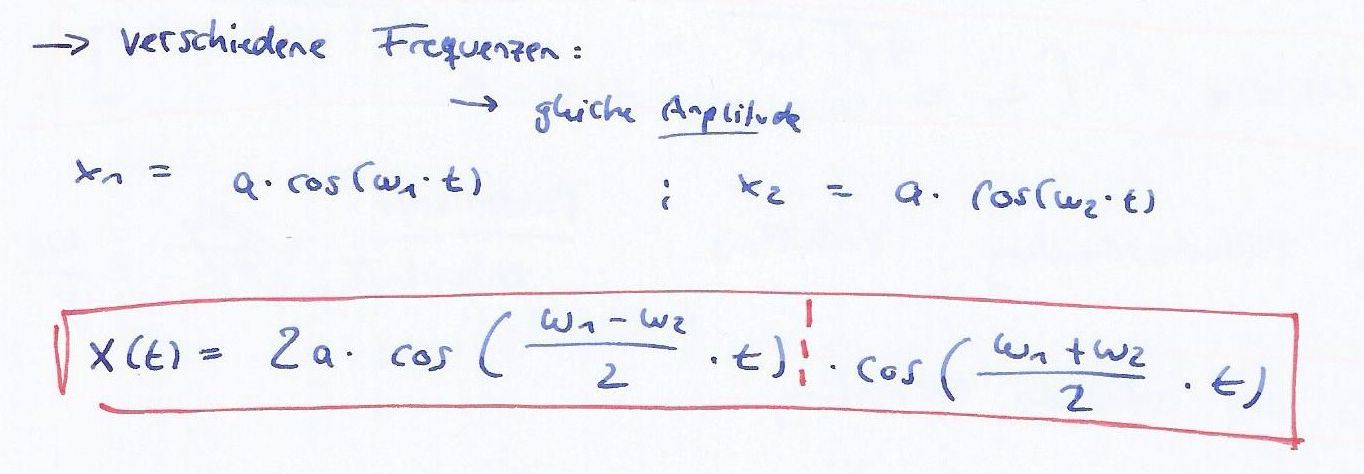 → verschiedene Frequenzen:
→ gleiche Amplitude
x₁ = a · cos(ω₁ · t) ; x₂ = a · cos(ω₂ · t)
x(t) = 2a · cos((ω₁ − ω₂)/2 · t) ¦ · cos((ω₁ + ω₂)/2 · t)